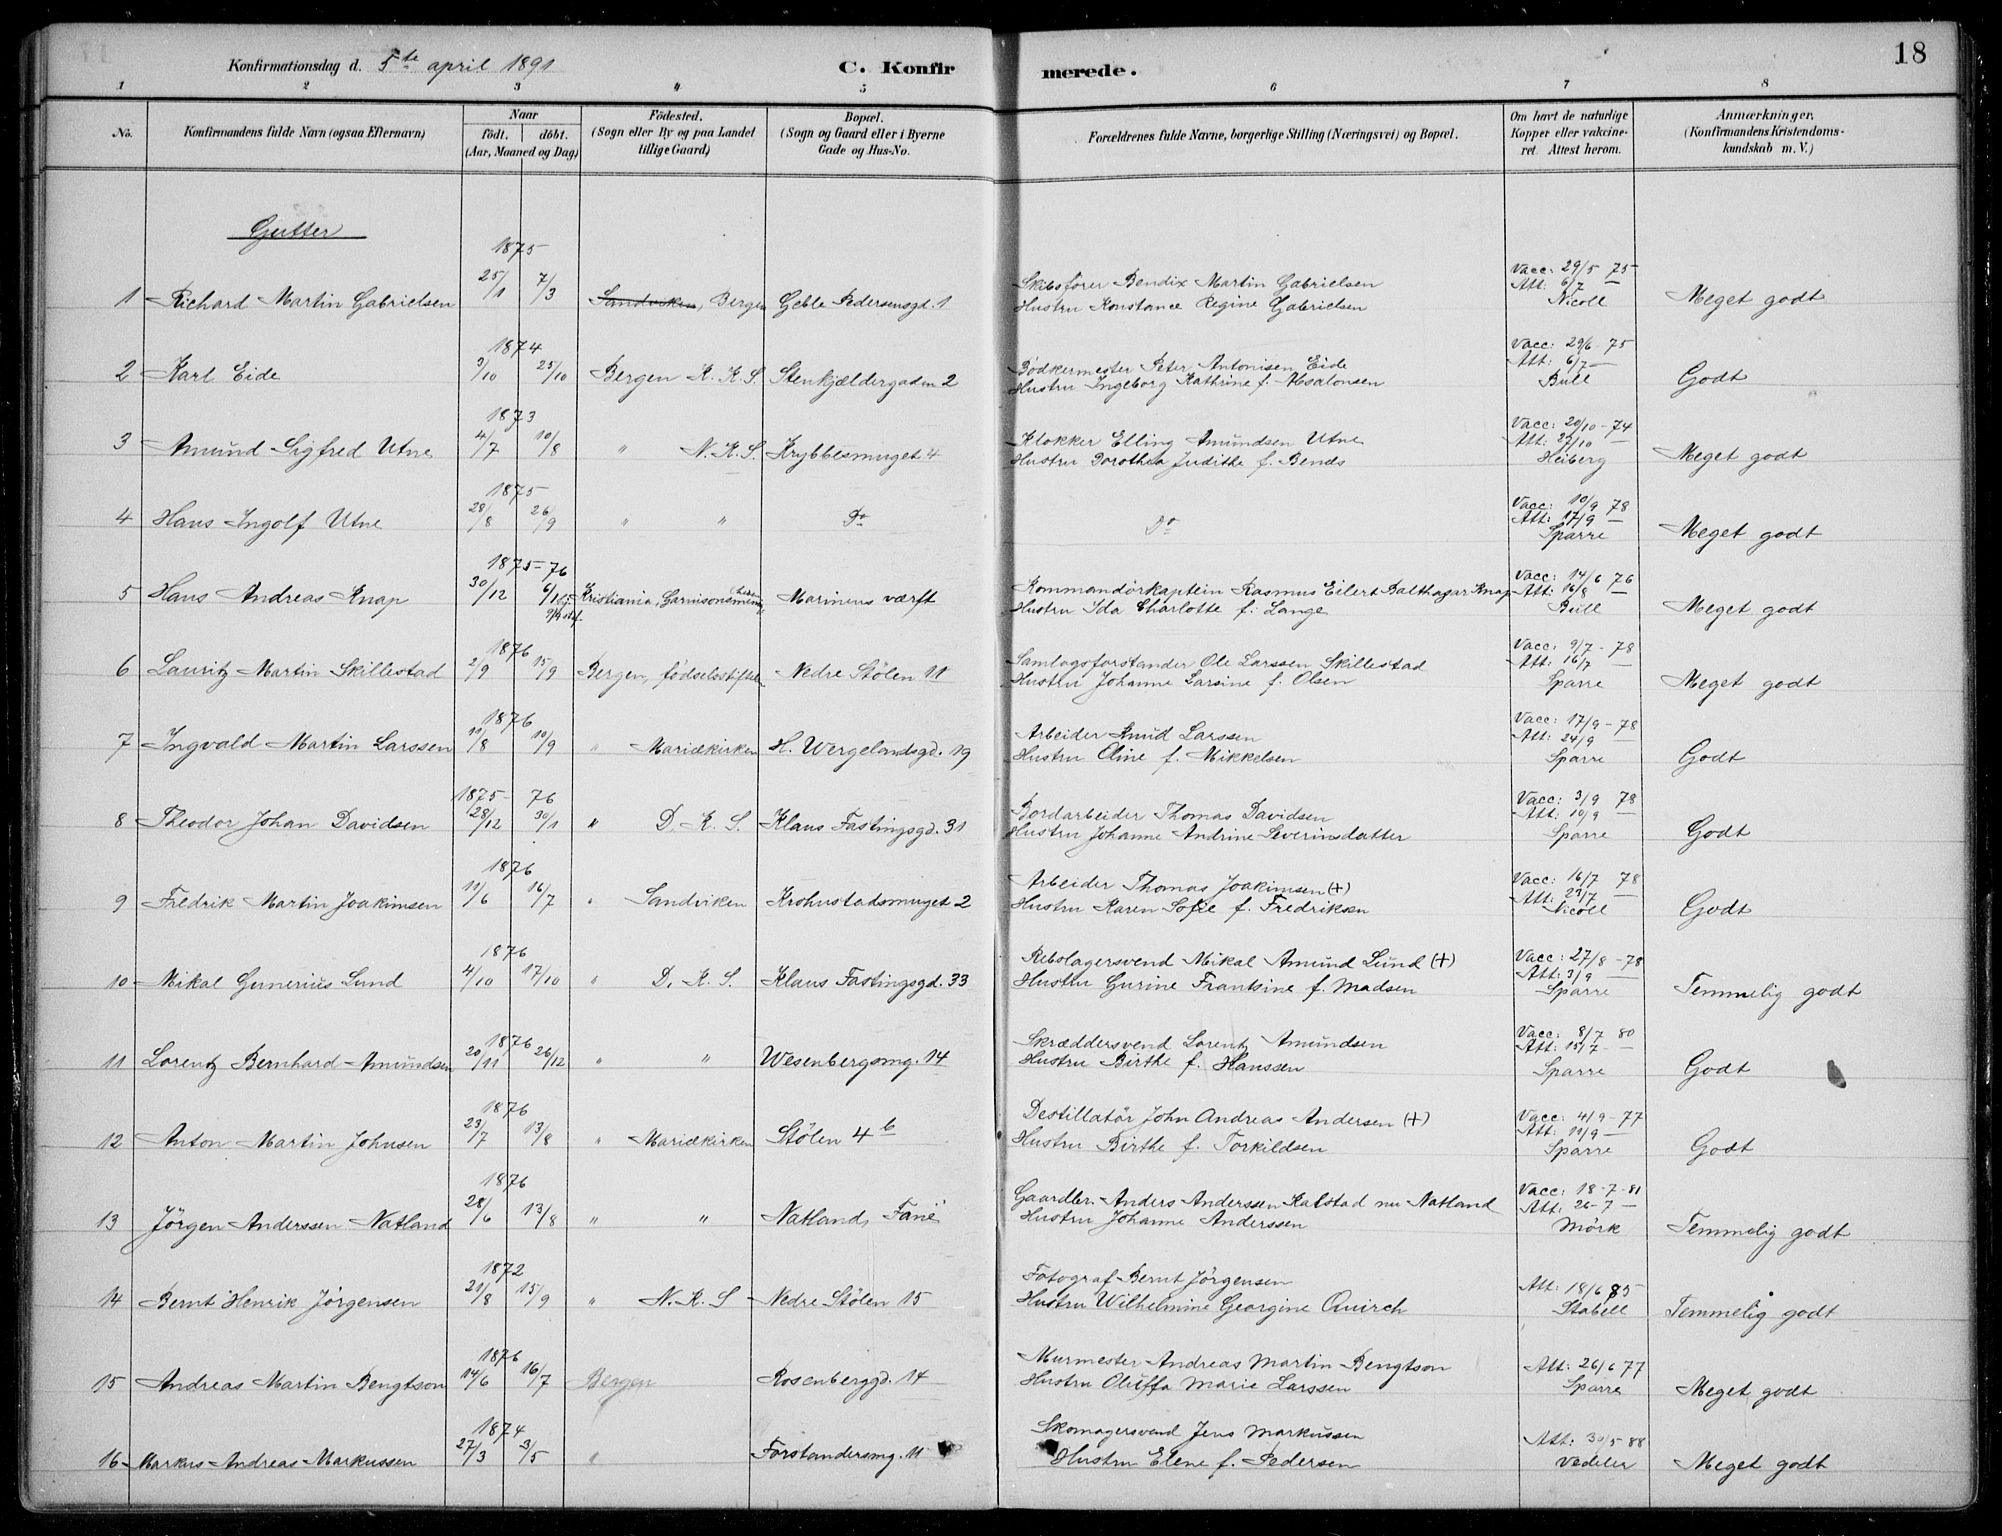 18
Konfirmationsdag d. 5te april 1891
C. Konfirmerede.
1 2 3 4 5 6 7 8
No.
Konfirmandens fulde Navn (ogsaa Efternavn)
Naar
födt. döbt.
(Aar, Maaned og Dag)
Födested.
(Sogn eller By og paa Landet
tillige Gaard)
Bopæl.
(Sogn og Gaard eller i Byerne
Gade og Hus-No.
Forældrenes fulde Navne, borgerlige Stilling (Næringsvei) og Bopæl.
Om havt de naturlige
Kopper eller vakcine-
ret. Attest herom.
Anmærkninger.
(Konfirmandens Kristendoms-
kundskab m. V.)
Gutter
1875
1 Richard Martin Gabrielsen 25/1 7/3 Sandviken, Bergen Geble Pedersensgd. 1
Skibsförer Bendix Martin Gabrielsen
Hustru Konstance Regine Gabrielsen
Vacc: 29/5 75
Att: 6/7 —
Nicoll
Meget godt
1874
2 Karl Eide 9/10 25/10 Bergen K. K. S. Stenkjældergaden 2
Bödkermester Peter Antonisen Eide
Hustru Ingeborg Kathrine f. Absalonsen
Vacc: 29/6 - 75
Att: 6/7 —
Bull
Godt
1873
3 Amund Sigfred Utne 4/7 10/8 " N. K. S. Krybbesmuget 4
Klokker Elling Amundsen Utne
Hustru Dorothea Judithe f. Bends
Vacc: 20/10 - 74
Att: 27/10 —
Heiberg
Meget godt
1875
4 Hans Ingolf Utne 28/8 26/9 " " Do
Do
Vacc: 10/9 78
Att: 17/9 —
Sparre
Meget godt
1875-76
5 Hans Andreas Knap 30/12 6/1 Kristiania, Garnisonsmenig. Marinens værft
Kommandörkaptein Rasmus Eilert Balthazar Knap
Hustru Ida Charlotte f. Lange
Vacc: 14/6 76
Att: 16/8 —
Bull
Meget godt
1876
6 Lauritz Martin Skillestad 2/9 15/9 Bergen, födselsstiftel. Nedre Stölen 11
Samlagsforstander Ole Larssen Skillestad
Hustru Johanne Larsine f. Olsen
Vacc: 9/7 - 78
Att: 16/7 —
Sparre
Meget godt
1876
7 Ingvald Martin Larssen 11/8 10/9 " Mariækirken H. Wergelandsgd. 19
Arbeider Knud Larssen
Hustru Oline f. Mikkelsen
Vacc: 17/9 - 78
Att: 24/9 —
Sparre
Godt
1875- 76
8 Theodor Johan Davidsen 28/12 30/1 " D. K. S. Klaus Fastingsgd. 31
Bordarbeider Thomas Davidsen
Hustru Johanne Andrine Severinsdatter
Vacc: 3/9 78
Att: 10/9 —
Sparre
Godt
1876
9 Fredrik Martin Joakimsen 11/6 16/7 " Sandviken Krohnstadsmuget 2
Arbeider Thomas Joakimsen (+)
Hustru Karen Sofie f. Fredriksen
Vacc: 16/7 78
Att: 23/7 —
Nicoll
Godt
1876
10 Mikal Gunerius Lund 4/10 17/10 " D. K. S. Klaus Fastingsgd. 33
Rebslagersvend Mikal Amund Lund (+)
Hustru Gurine Frantsine f. Madsen
Vacc: 27/8 - 78
Att: 3/9 —
Sparre
Temmelig godt
1876
11 Lorentz Bernhard Amundsen 20/11 26/12 " " Wesenbergsmg. 14
Skræddersvend Lorentz Amundsen
Hustru Birthe f. Hanssen
Vacc: 8/7 80
Att: 15/7 —
Sparre
Godt
1876
12 Anton Martin Johnsen 23/7 13/8 " Mariækirken Stölen 4b
Destillatör John Andreas Andersen (+)
Hustru Birthe f. Torkildsen
Vacc: 4/9 - 77
Att: 11/9 —
Sparre
Godt
1876
13 Jörgen Anderssen Natland 28/6 13/8 " " Natland, Fane
Gaardbr. Anders Anderssen Kalstad nu Natland
Hustru Johanne Anderssen
Vacc: 18-7-81
Att: 26-7 —
Mörk
Temmelig godt
1872
14 Bernt Henrik Jörgensen 21/8 15/9 " N. K. S Nedre Stölen 15
Fotograf Bernt Jörgensen
Hustru Wilhelmine Georgine Quirch
Att: 18/6 85
Stabell
Temmelig godt
1876
15 Andreas Martin Bengtson 14/6 16/7 Bergen Rosenberggd. 14
Murmester Andreas Martin Bengtson
Hustru Oluffa Marie Larssen
Att: 26/6 77
Sparre
Meget godt
1874
16 Markus Andreas Markussen 27/3 3/5 " Forstandersmg. 11
Skomagersvend Jens Markussen
Hustru Elene f. Pedersen
Att: 30/5 88
Vedeler
Meget godt